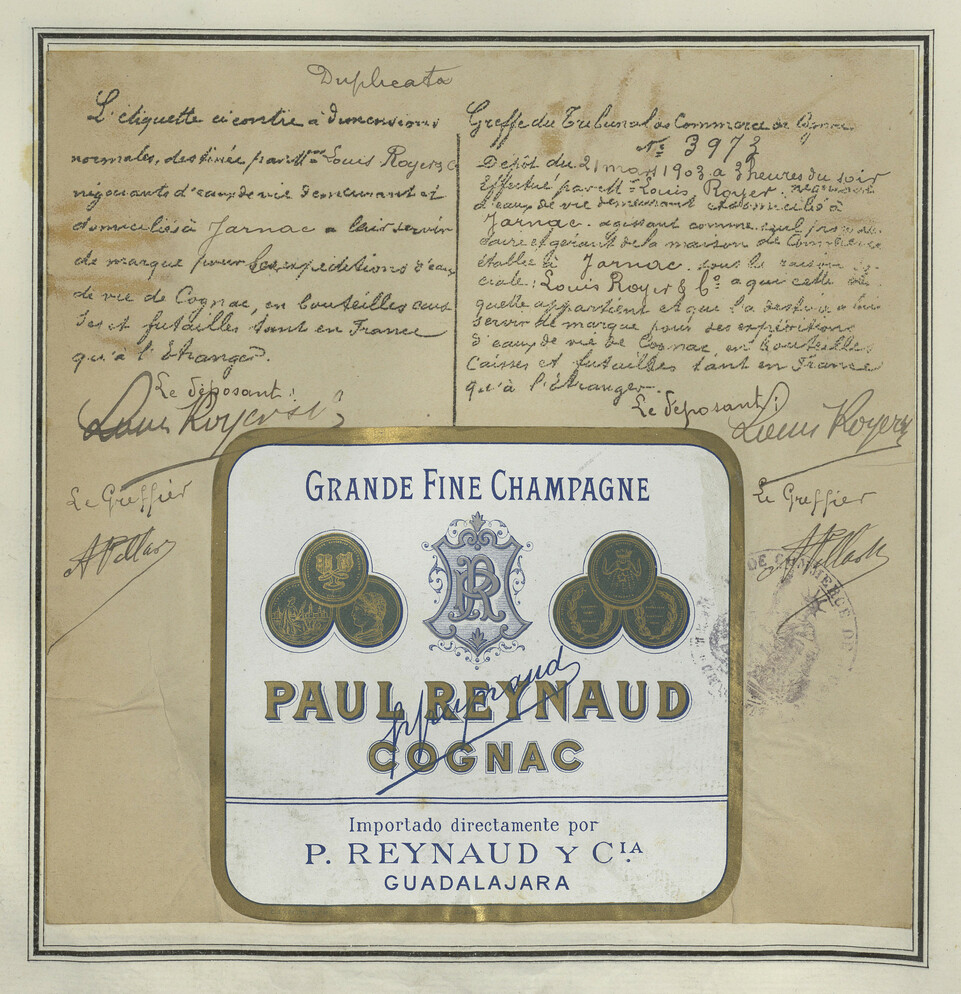 Duplicata
L'étiquette ci contre à dimensions
normales, destinée par Mr Louis Royer & Co
négociants d'eaux de vie demeurant et
domiciliés à Jarnac a lui servir
de marque pour ses expéditions d'eaux
de vie de Cognac, en bouteilles cais
ses et futailles, tant en France
qu'à l'Etranger.
Le déposant :
Louis Royer & Co
Le Greffier
Greffe du Tribunal de Commerce de Cognac
No 3973
Dépôt du 21 mars 1903 à 3 heures du soir
Effectué par Mr Louis Royer, négociant
d'eaux de vie demeurant et domicilié à
Jarnac, agissant comme seul proprié
taire et gérant de la maison de Commerce
établie à Jarnac sous la raison so
ciale : Louis Royer & Co a qui cette éti
quette appartient et que l'a destinée à lui
servir de marque pour ses expéditions
d'eaux de vie de Cognac en bouteilles
Caisses et futailles tant en France
qu'à l'étranger.
Le déposant :
Louis Royer
Le Greffier
DE COMMERCE DE
GRANDE FINE CHAMPAGNE
PR
PAUL REYNAUD
P Reynaud
COGNAC
Importado directamente por
P. REYNAUD Y CIA.
GUADALAJARA